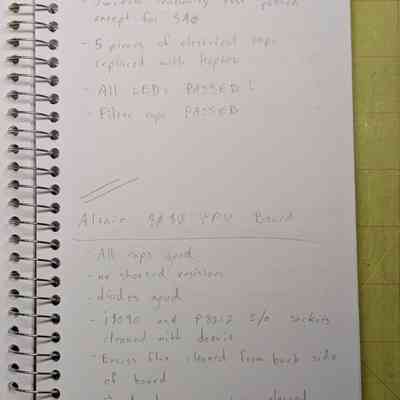 except for S10
- 5 pieces of electrical tape
replaced with kapton
- All LEDs PASSED!
- Filter caps PASSED
Altair 8080 CPU Board
- All caps good
- no shorted resistors
- diodes good
- i8080 and P8212 I/O sockets
cleaned with deoxit
- Excess flux cleaned from back side
of board